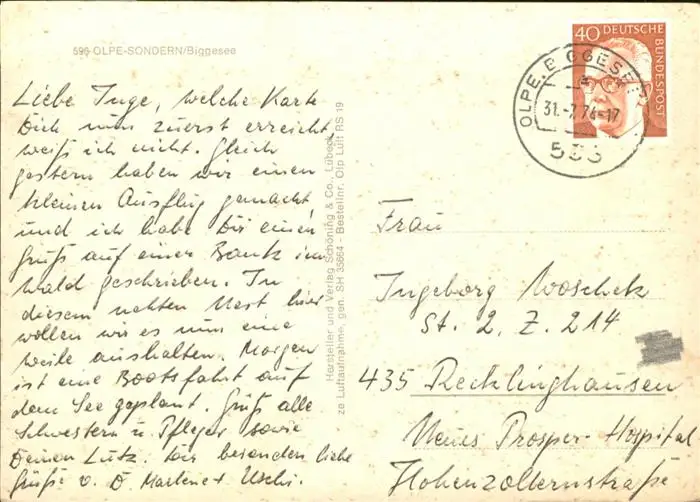 596 OLPE-SONDERN/Biggesee
Liebe Inge, welche Karte
Dich nun zuerst erreicht,
weiß ich nicht. Gleich
gestern haben wir einen
kleinen Ausflug gemacht
und ich habe Dir einen
Gruß auf einer Bank im
Wald geschrieben. In
diesem netten Nest hier
wollen wir es nun eine
Weile aushalten. Morgen
ist eine Bootsfahrt auf
dem See geplant. Grüß alle
Schwestern u. Pfleger sowie
Deinen Lutz. Dir besonders liebe
Grüße v. D. Marlene + Uschi.
Hersteller und Verlag Schöning & Co., Lübeck
ze Luftaufnahme, gen. SH 35664 - Bestellnr. Olp Luft RS 19
40 DEUTSCHE
BUNDESPOST
OLPE, BIGGESEE
31.-7.74-17
Frau
Ingeborg Woschek
St. 2, Z. 214
435 Recklinghausen
Neues Prosper-Hospital
Hohenzollernstraße